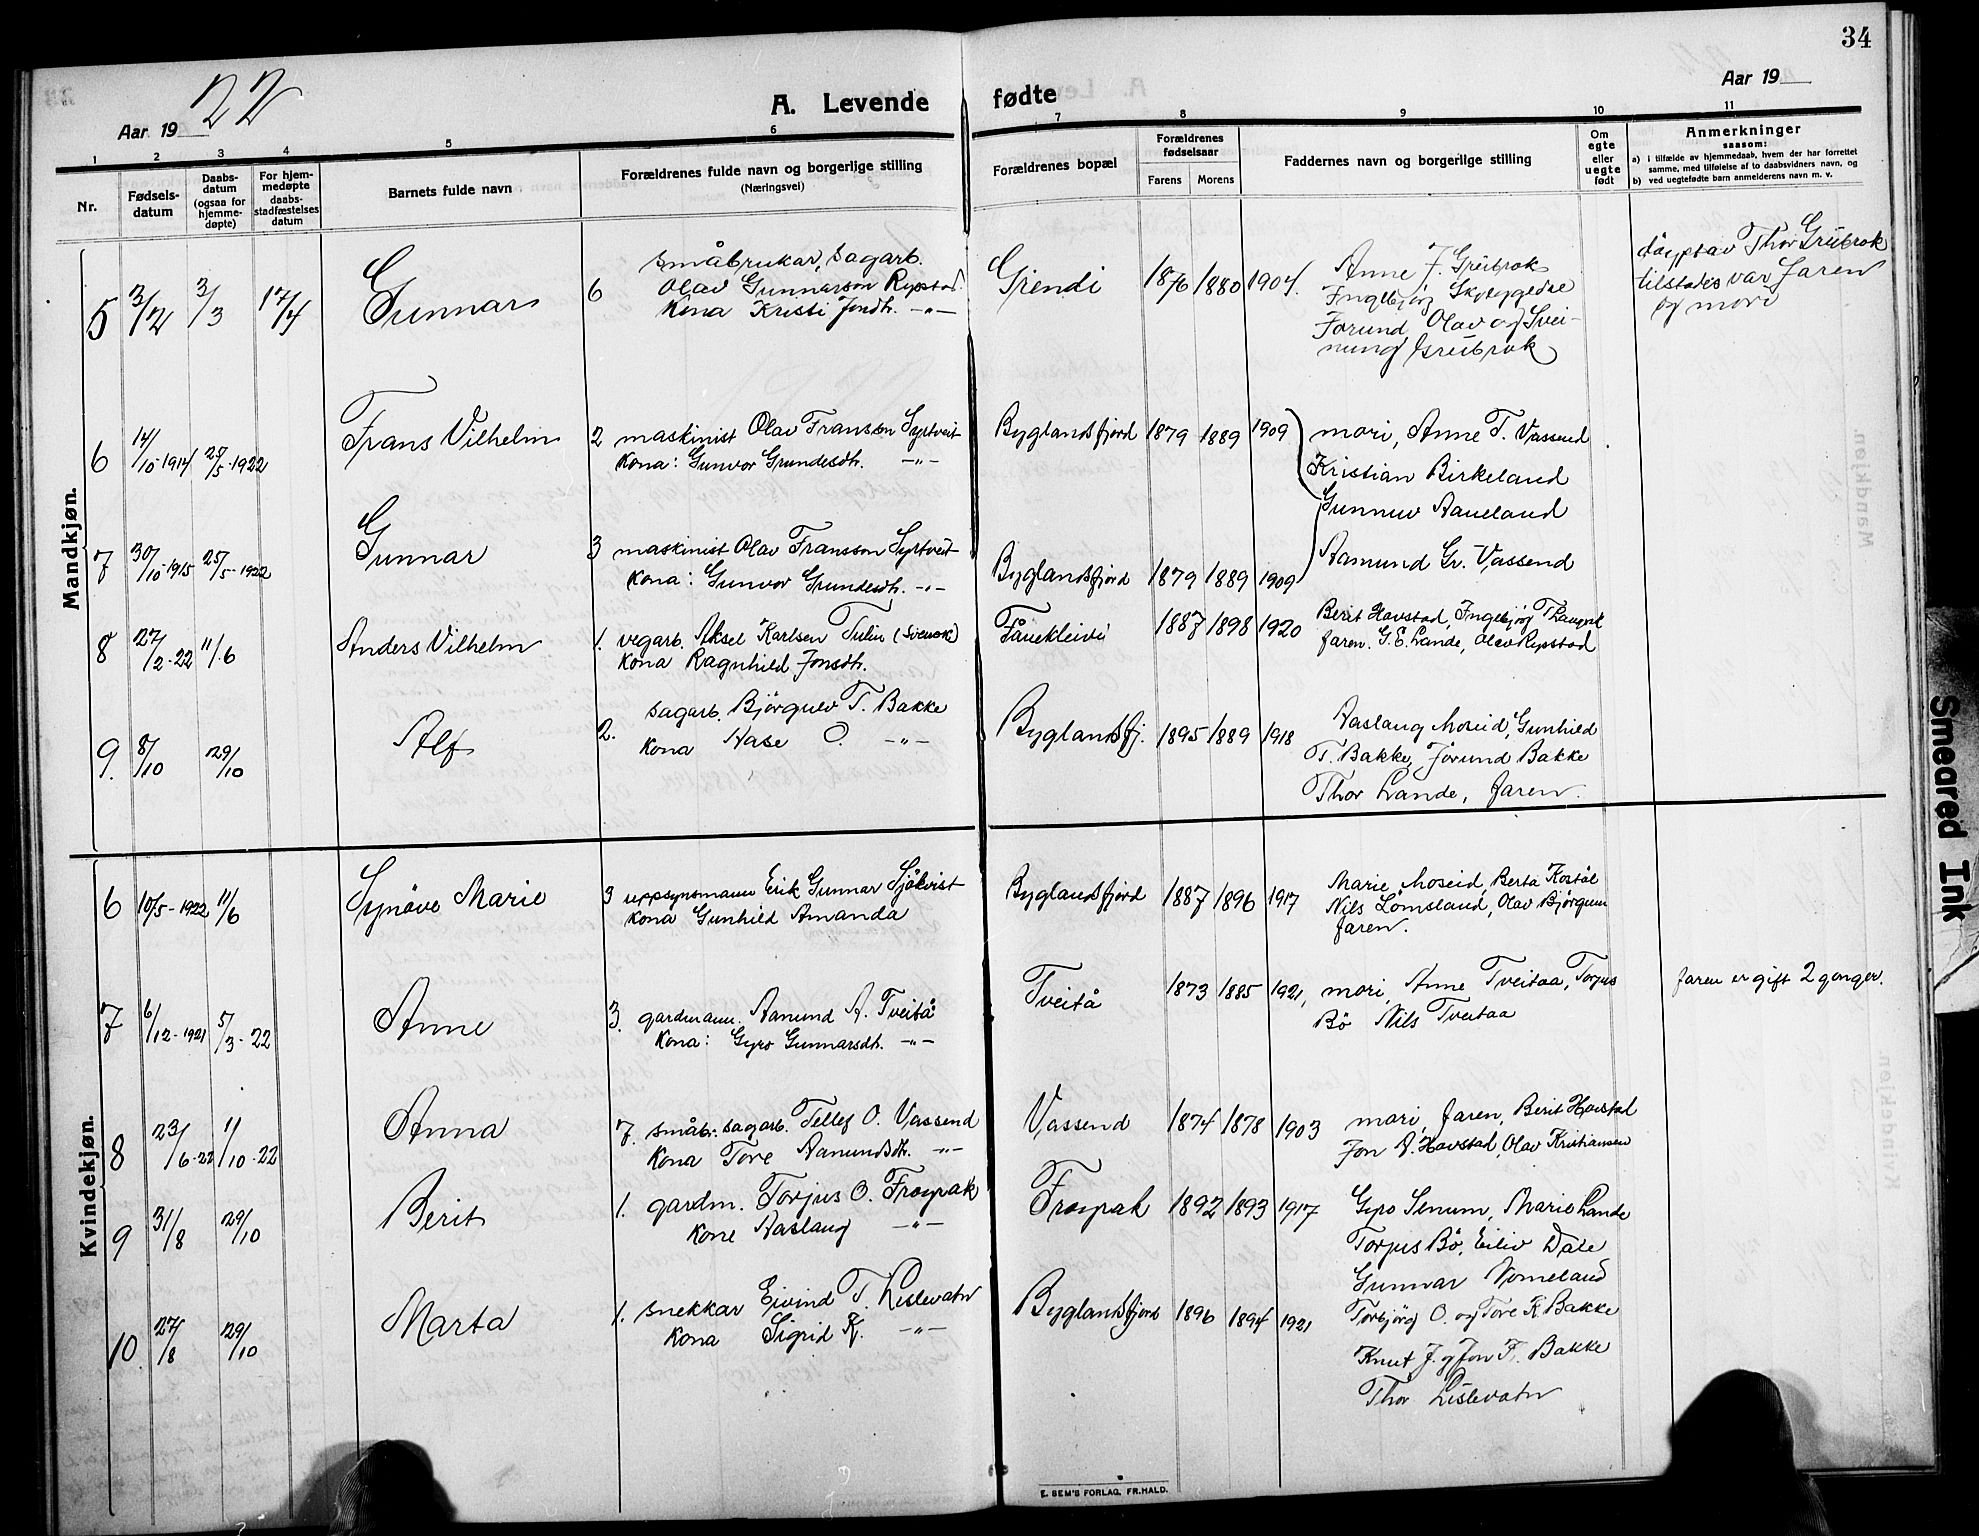 34
Aar 19 22
A. Levende fødte
Aar 19
1 2 3 4 5 6 7 8 9 10 11
Nr.
Fødsels-
datum
Daabs-
datum
(ogsaa for
hjemme-
døpte)
For hjem-
medøpte
daabs-
stadfæstelses
datum
Barnets fulde navn
Forældrenes fulde navn og borgerlige stilling
(Næringsvei)
Forældrenes bopæl
Forældrenes
fødselsaar
Farens Morens
Faddernes navn og borgerlige stilling
Om
egte
eller
uegte
født
Anmerkninger
saasom:
a) i tilfælde av hjemmedaab, hvem der har forrettet
samme, med tilføielse af to daabsvidners navn, og
b) ved uegtefødte barn anmelderens navn m. v.
Mandkjøn.
5 3/2 3/3 17/4 Gunnar 6 småbrukar, sagarb.
Olav Gunnarson Rysstad
Kona Kristi Jondtr. -"-
Grendi 1876 1880 1904.
Anne J. Greibrok
Ingebjørg
Jorund, Olav og Svei-
nung Greibrok
døypt av Thor Greibrok
tilstades var faren
og mori
6 14/10-1914 25/5-1922 Frans Vilhelm 2 maskinist Olav Fransson Syrtveit
Kona: Gunvor Grundesdtr. -"-
Byglandsfjord 1879 1889 1909
mori, Anne T. Vassend
Kristian Birkeland
Gunnuv Aaneland
7 30/10-1915 25/5-1922 Gunnar 3 maskinist Olav Fransson Syrtveit
Kona: Gunvor Grundesdtr. -"-
Byglandsfjord 1879 1889 1909
Aamund Gr. Vassend
8 27/2-22 11/6 Anders Vilhelm 1. vegarb. Aksel Karlsen Tulin (svensk)
Kona Ragnhild Jonsdtr.
Fånekleivi 1887 1898 1920
Berit Havstad, Ingebjørg
faren. G. E. Lande, Olav Rysstad
9. 8/10 29/10 Alf 2. sagarb. Bjørgulv T. Bakke
Kona Aase O. -"-
Byglandsfj. 1895 1889 1918
Aaslaug Moseid, Gunhild
T. Bakke, Jorund Bakke
Thor Lande, faren.
Kvindekjøn.
6 10/5-1922 11/6 Synöve Marie 3 uppsynsmann Erik Gunnar Sjökvist
Kona Gunhild Amanda
Byglandsfjord 1887 1896 1917
Marie Moseid, Berta Kostöl
Nils Lömsland, Olav Bjørgum
faren.
7 6/12-1921 5/3-22 Anne 3. gardmann. Aamund A. Tveitå
Kona: Gyro Gunnarsdtr. -"-
Tveitå 1873 1885 1921,
mori, Anne Tveitaa, Torjus
Bö Nils Tveitaa
faren er gift 2 gonger.
8 23/6-22 1/10-22 Anna 7. småbr. sagarb. Tellef O. Vassend
Kona Tore Aamundsdtr. -"-
Vassend 1874 1878 1903
mori, faren, Berit Havstad
Jon A. Havstad, Olav Kristiansen
9 31/8 29/10 Berit 1. gardm. Torjus O. Frøyrak
Kone Aaslaug -"-
Frøyrak 1892 1893 1917
Gyro Senum, Marie Lande
Torjus Bö, Eiliv Dale
Gunnar Vomeland
10. 27/8 29/10 Marta 1. snekkar Eivind T. Lislevatn
Kona Sigrid K. -"-
Byglandsfjord 1896 1894 1921
Torbjörg O. og Tore K. Bakke
Knut J. og Jon F. Bakke
Thor Lislevatn
E. SEM'S FORLAG, FR.HALD.
Smeared Ink